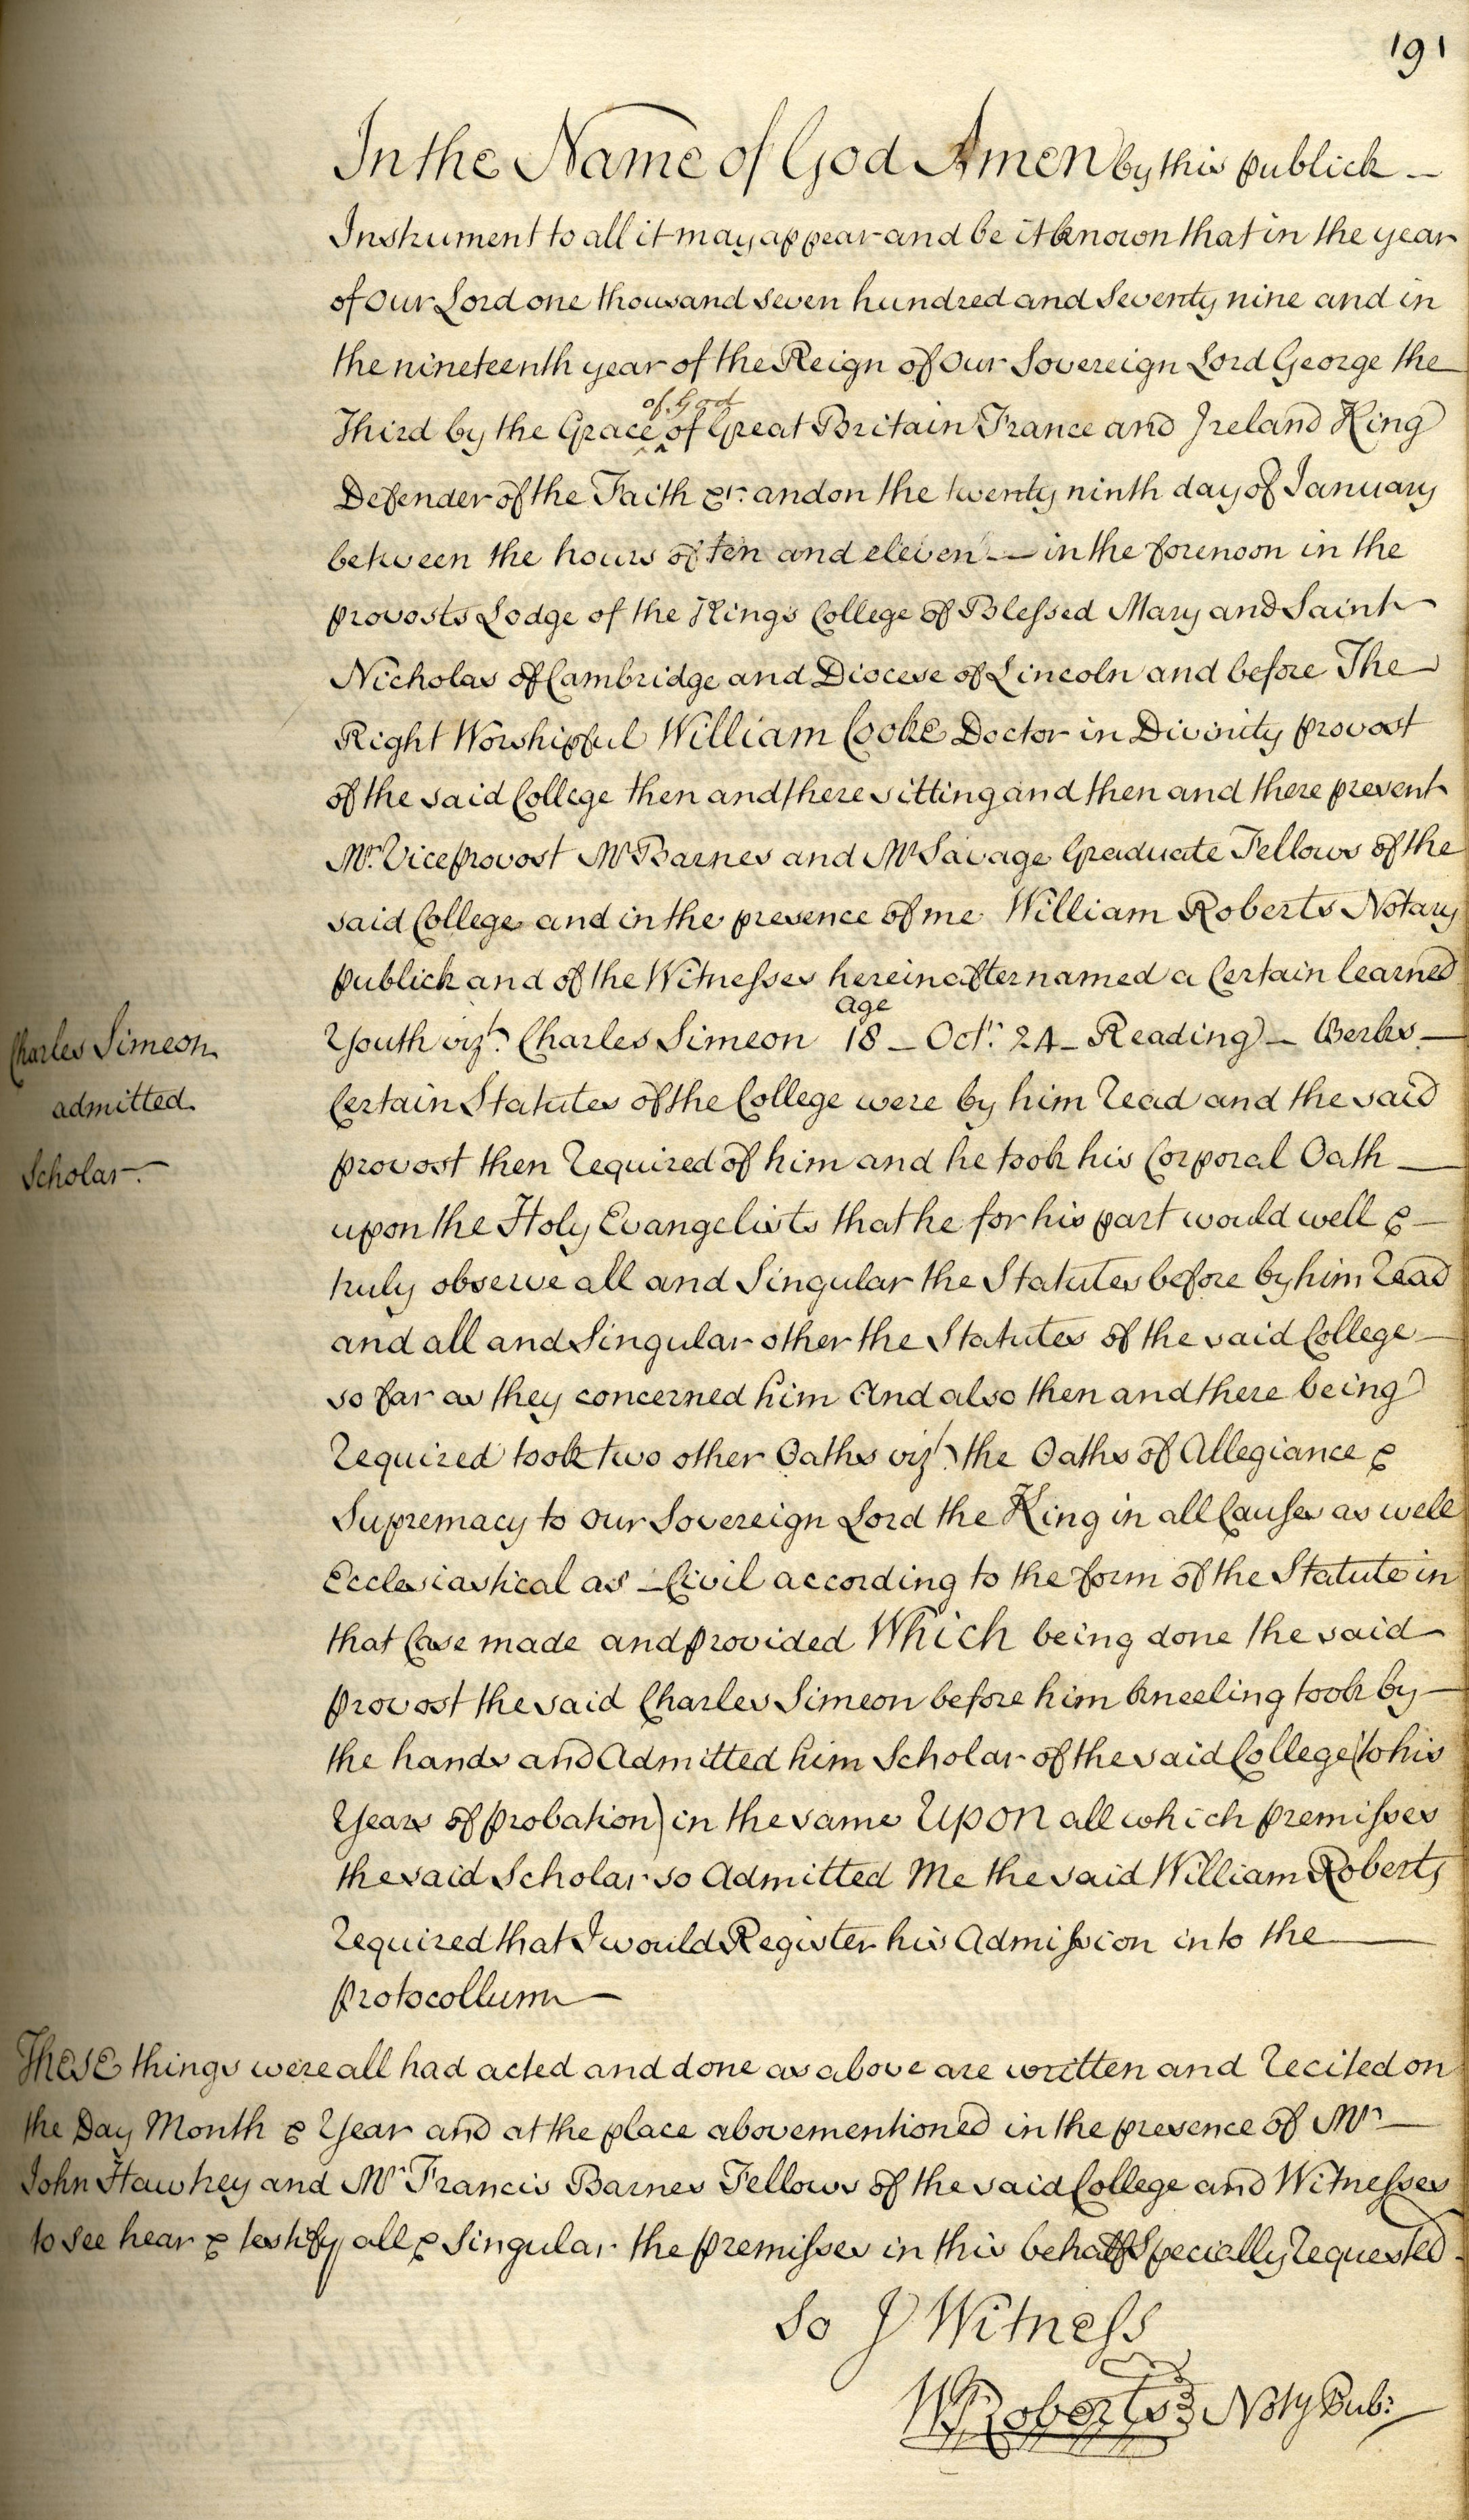 191
In the Name of God Amen by this publick –
Instrument to all it may appear and be it known that in the year
of our Lord one thousand seven hundred and Seventy nine and in
the nineteenth year of the Reign of our Sovereign Lord George the
of God
Third by the Grace ^ of Great Britain France and Ireland King
Defender of the Faith &c. and on the twenty ninth day of January
between the hours of ten and eleven — in the forenoon in the
provosts Lodge of the Kings College of Blessed Mary and Saint
Nicholas of Cambridge and Diocese of Lincoln and before The
Right Worshipful William Cooke Doctor in Divinity provost
of the said College then and there sitting and then and there present
Mr. Viceprovost Mr Barnes and Mr Savage Graduate Fellows of the
said College and in the presence of me William Roberts Notary
publick and of the Witnesses hereinafter named a Certain learned
Age
Youth vizt. Charles Simeon 18 – Octr. 24 – Reading – Berks –
Charles Simeon
admitted.
Scholar.
Certain Statutes of the College were by him read and the said
provost then required of him and he took his Corporal Oath —
upon the Holy Evangelists that he for his part would well & –
truly observe all and Singular the Statutes before by him read
and all and Singular other the Statutes of the said College –
so far as they concerned him And also then and there being
required took two other Oaths vizt. the Oaths of Allegiance &
Supremacy to our Sovereign Lord the King in all Causes as well
Ecclesiastical as – Civil according to the form of the Statute in
that Case made and provided Which being done the said
provost the said Charles Simeon before him kneeling took by –
the hands and Admitted him Scholar of the said College (to his
Years of probation) in the same Upon all which premisses
the said Scholar so Admitted Me the said William Roberts
required that I would Register his Admission into the —
protocollum —
These things were all had acted and done as above are written and recited on
the Day Month & Year and at the place abovementioned in the presence of Mr –
John Hawtrey and Mr Francis Barnes Fellows of the said College and Witnesses
to see hear & testify all & Singular the premisses in this behalf Specially requested.
So I Witness
WRoberts Noty Pub: